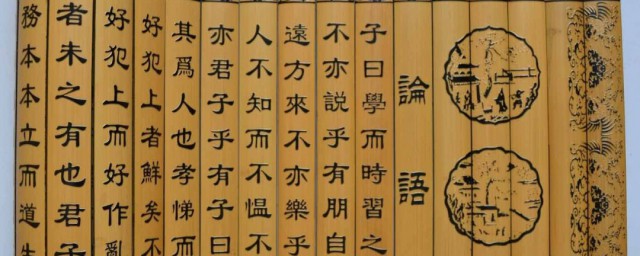 論語
子曰學而時習之
不亦説乎有朋自
遠方來不亦樂乎
人不知而不愠不
亦君子乎有子曰
其爲人也孝悌而
好犯上者鮮矣不
好犯上而好作亂
者未之有也君子
務本本立而道生